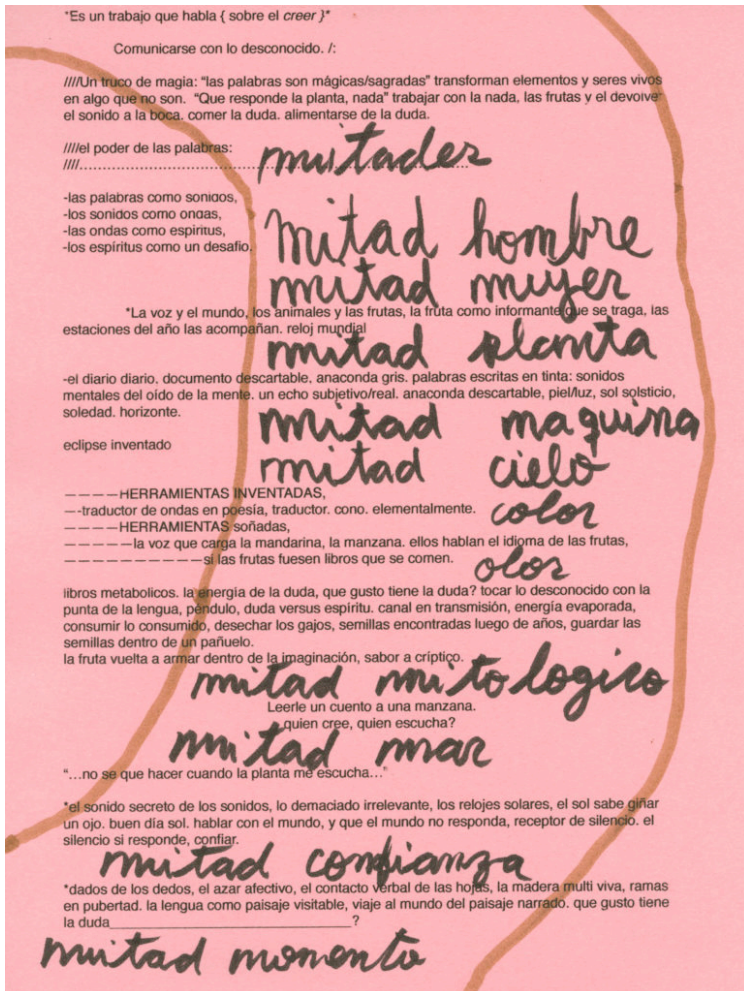 *Es un trabajo que habla { sobre el creer }*
Comunicarse con lo desconocido. /:
////Un truco de magia: “las palabras son mágicas/sagradas” transforman elementos y seres vivos
en algo que no son. “Que responde la planta, nada” trabajar con la nada, las frutas y el devolver
el sonido a la boca. comer la duda. alimentarse de la duda.
////el poder de las palabras:
////...............................................................................................
mitades
-las palabras como sonidos,
-los sonidos como ondas,
-las ondas como espiritus,
-los espíritus como un desafio.
mitad hombre
mitad mujer
*La voz y el mundo, los animales y las frutas, la fruta como informante que se traga, las
estaciones del año las acompañan. reloj mundial
mitad planta
-el diario diario. documento descartable, anaconda gris. palabras escritas en tinta: sonidos
mentales del oído de la mente. un echo subjetivo/real. anaconda descartable, piel/luz, sol solsticio,
soledad. horizonte.
mitad maquina
eclipse inventado
mitad cielo
————HERRAMIENTAS INVENTADAS,
—-traductor de ondas en poesía, traductor. cono. elementalmente.
color
————HERRAMIENTAS soñadas,
—————la voz que carga la mandarina, la manzana. ellos hablan el idioma de las frutas,
——————————si las frutas fuesen libros que se comen.
olor
libros metabolicos. la energía de la duda, que gusto tiene la duda? tocar lo desconocido con la
punta de la lengua, péndulo, duda versus espíritu. canal en transmisión, energía evaporada,
consumir lo consumido, desechar los gajos, semillas encontradas luego de años, guardar las
semillas dentro de un pañuelo.
la fruta vuelta a armar dentro de la imaginación, sabor a críptico.
mitad mitologico
Leerle un cuento a una manzana.
quien cree, quien escucha?
mitad mar
“...no se que hacer cuando la planta me escucha...”
*el sonido secreto de los sonidos, lo demaciado irrelevante, los relojes solares, el sol sabe giñar
un ojo. buen día sol. hablar con el mundo, y que el mundo no responda, receptor de silencio. el
silencio si responde, confiar.
mitad confianza
*dados de los dedos, el azar afectivo, el contacto verbal de las hojas, la madera multi viva, ramas
en pubertad. la lengua como paisaje visitable, viaje al mundo del paisaje narrado. que gusto tiene
la duda___________________________________?
mitad momento